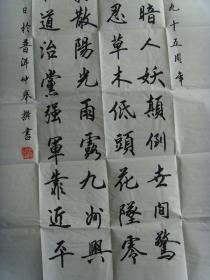 九十五周年
暗人妖顛倒世間驚
忍草木低頭花墜零
散陽光雨露九州興
道治黨强軍靠近平
日於普洱仲舉撰書